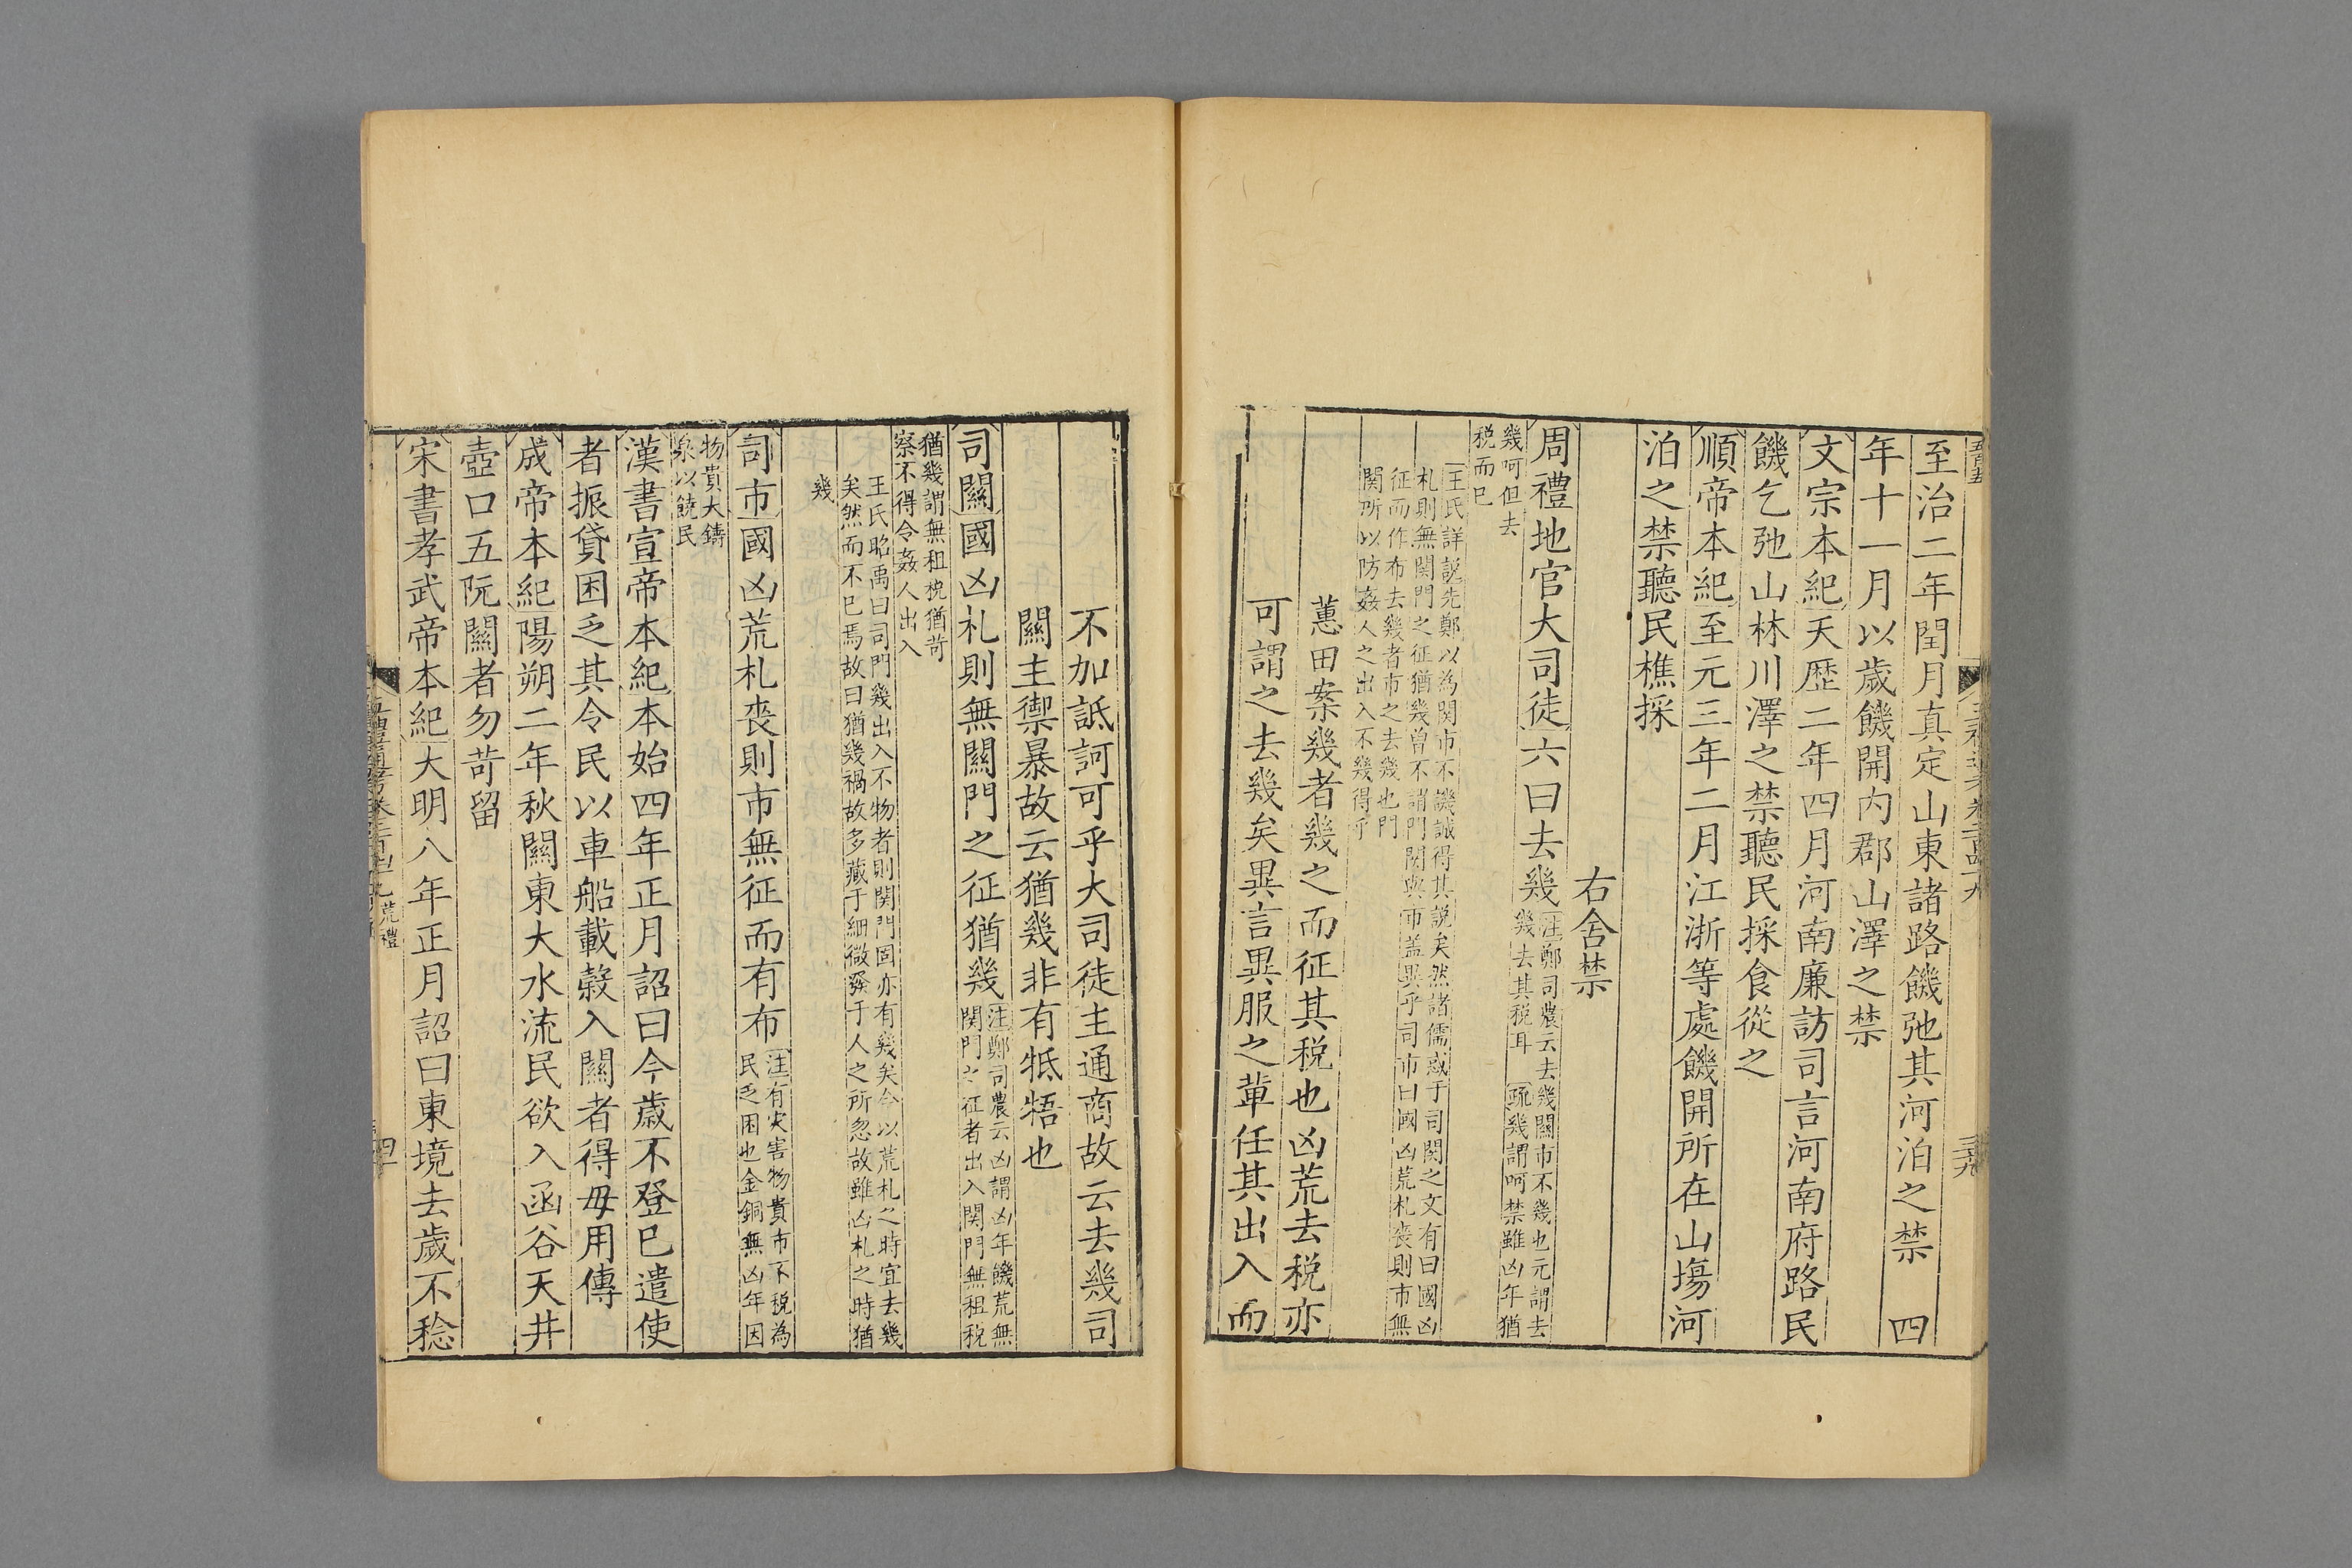 至治二年閏月真定山東諸路饑弛其河泊之禁　四
年十一月以歲饑開内郡山澤之禁
文宗本紀天歴二年四月河南廉訪司言河南府路民
饑乞弛山林川澤之禁聽民採食從之
順帝本紀至元三年二月江浙等處饑開所在山塲河
泊之禁聽民樵採
右舍禁
周禮地官大司徒六曰去幾
注鄭司農云去幾關市不幾也元謂去
幾去其税耳　疏幾謂呵禁雖凶年猶
幾呵但去
税而已
王氏詳説先鄭以為関市不幾誠得其説矣然諸儒惑于司関之文有曰國凶
札則無関門之征猶幾曾不謂門関與市盖異乎司市曰國凶荒札喪則市無
征而作布去幾者市之去幾也門
関所以防姦人之出入不幾得乎
蕙田案幾者幾之而征其税也凶荒去税亦
可謂之去幾矣異言異服之軰任其出入而
不加詆訶可乎大司徒主通商故云去幾司
關主禦暴故云猶幾非有牴牾也
司關國凶札則無關門之征猶幾
注鄭司農云凶謂凶年饑荒無
関門之征者出入関門無租税
猶幾謂無租税猶苛
察不得令姦人出入
王氏昭禹曰司門幾出入不物者則関門固亦有幾矣今以荒札之時宜去幾
矣然而不已焉故曰猶幾禍故多藏于細微發于人之所忽故雖凶札之時猶
幾
司市國凶荒札喪則市無征而有布
注有灾害物貴市不税為
民乏困也金銅無凶年因
物貴大鑄
泉以饒民
漢書宣帝本紀本始四年正月詔曰今歲不登已遣使
者振貸困乏其令民以車船載穀入關者得毋用傳
成帝本紀陽朔二年秋關東大水流民欲入函谷天井
壺口五阮關者勿苛留
宋書孝武帝本紀大明八年正月詔曰東境去歲不稔
荒禮